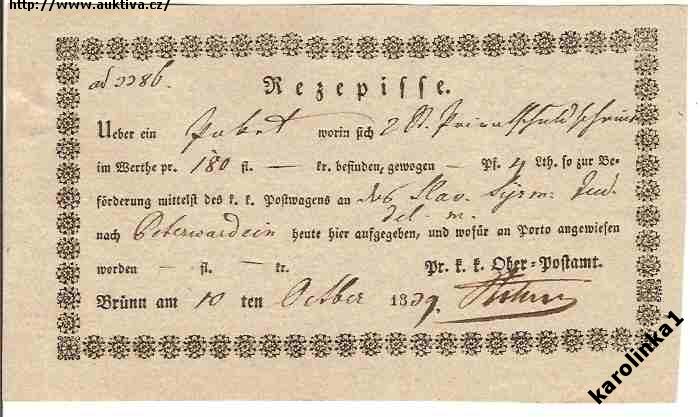 http://www.auktiva.cz/
Rezepisse.
Ueber ein Paket worin sich 2 St. Privatschuldschein
im Werthe pr. 180 fl. — kr. befinden, gewogen — Pf. 4 Lth. so zur Be-
förderung mittelst des k. k. Postwagens an das Slav. Syrm.
nach Peterwardein heute hier aufgegeben, und wofür an Porto angewiesen
worden — fl. — kr. Pr. k. k. Ober-Postamt.
Brünn am 10 ten October 1839.
karolinka1